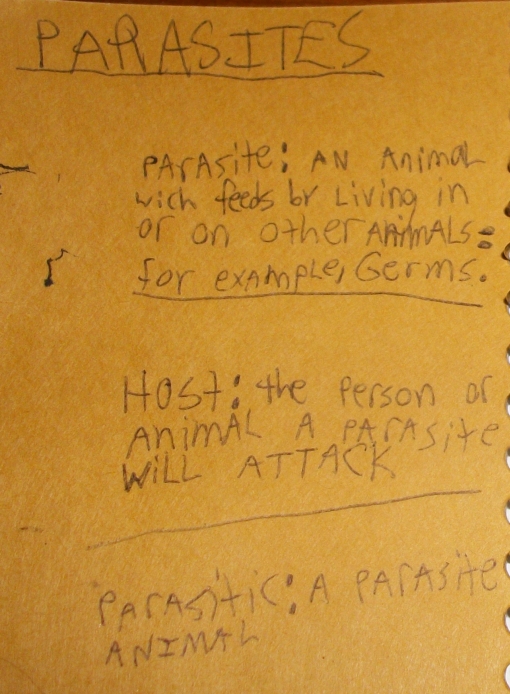 PARASITES
PARASite: AN ANimaL
wich feeds by Living in
or on other ANiMALS:
for exampLe, Germs.
HOSt: the Person or
ANiMAL A PARAsite
WiLL ATTACK
PArAsitiC: A PArAsite
ANIMAL